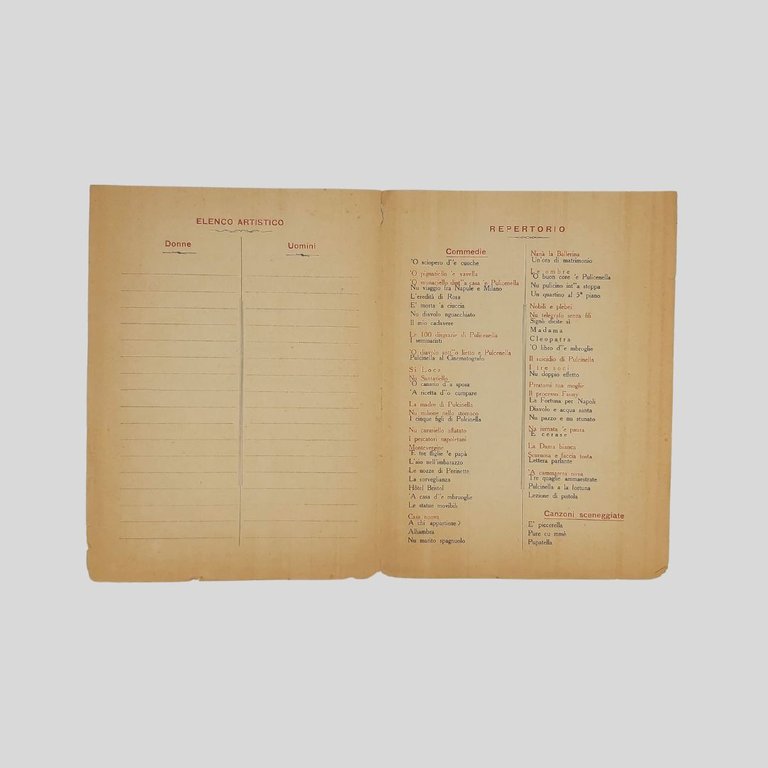 ELENCO ARTISTICO
Donne
Uomini
REPERTORIO
Commedie
'O sciopero d''e cuoche
'O pignatiello 'e vavella
'O munaciello dint'a casa e Pulicenella
Nu viaggio fra Napule e Milano
L'eredità di Rosa
E' morta 'a ciuccia
Nu diavolo squacchiato
Il mio cadavere
Le 100 disgrazie di Pulicenella
I seminaristi
'O diavolo sott''o lietto e Pulicenella
Pulcinella al Cinematografo
Si Loco
Nu Sansariello
'O canisto d''a sposa
'A ricetta d''o cumpare
La madre di Pulcinella
Nu milione nello stomaco
I cinque figli di Pulcinella
Nu cammello affatato
i pescatori napoletani
Montevergine
'E tre ffiglie 'e papà
L'aio nell'imbarazzo
Le nozze di Perinette
La sorveglianza
Hôtel Bristol
'A casa d''e mbruoglie
Le statue movibili
Casa nuova
A chi appartiene?
Alhambra
Nu marito spagnuolo
Nanà la Ballerina
Un'ora di matrimonio
Le ombre
'O buon core 'e Pulicenella
Nu pulicino int''a stoppa
Un quartino al 5° piano
Nobili e plebei
Nu telegrafo senza fili
Signò dicite sì
Madama
Cleopatra
'O libro d''e mbroglie
Il suicidio di Pulcinella
I tre soci
Nu doppio effetto
Prestami tua moglie
Il processo Fanny
La Fortuna per Napoli
Diavolo e acqua santa
Nu pazzo e nu stunato
Na jurnata 'e paura
'E cerase
La Dama bianca
Scumma e faccia tosta
Lettera parlante
'A cammarera nova
Tre quaglie ammaestrate
Pulcinella a la fortuna
Lezione di pistola
Canzoni sceneggiate
E' piccerella
Pure cu mmè
Pupatella